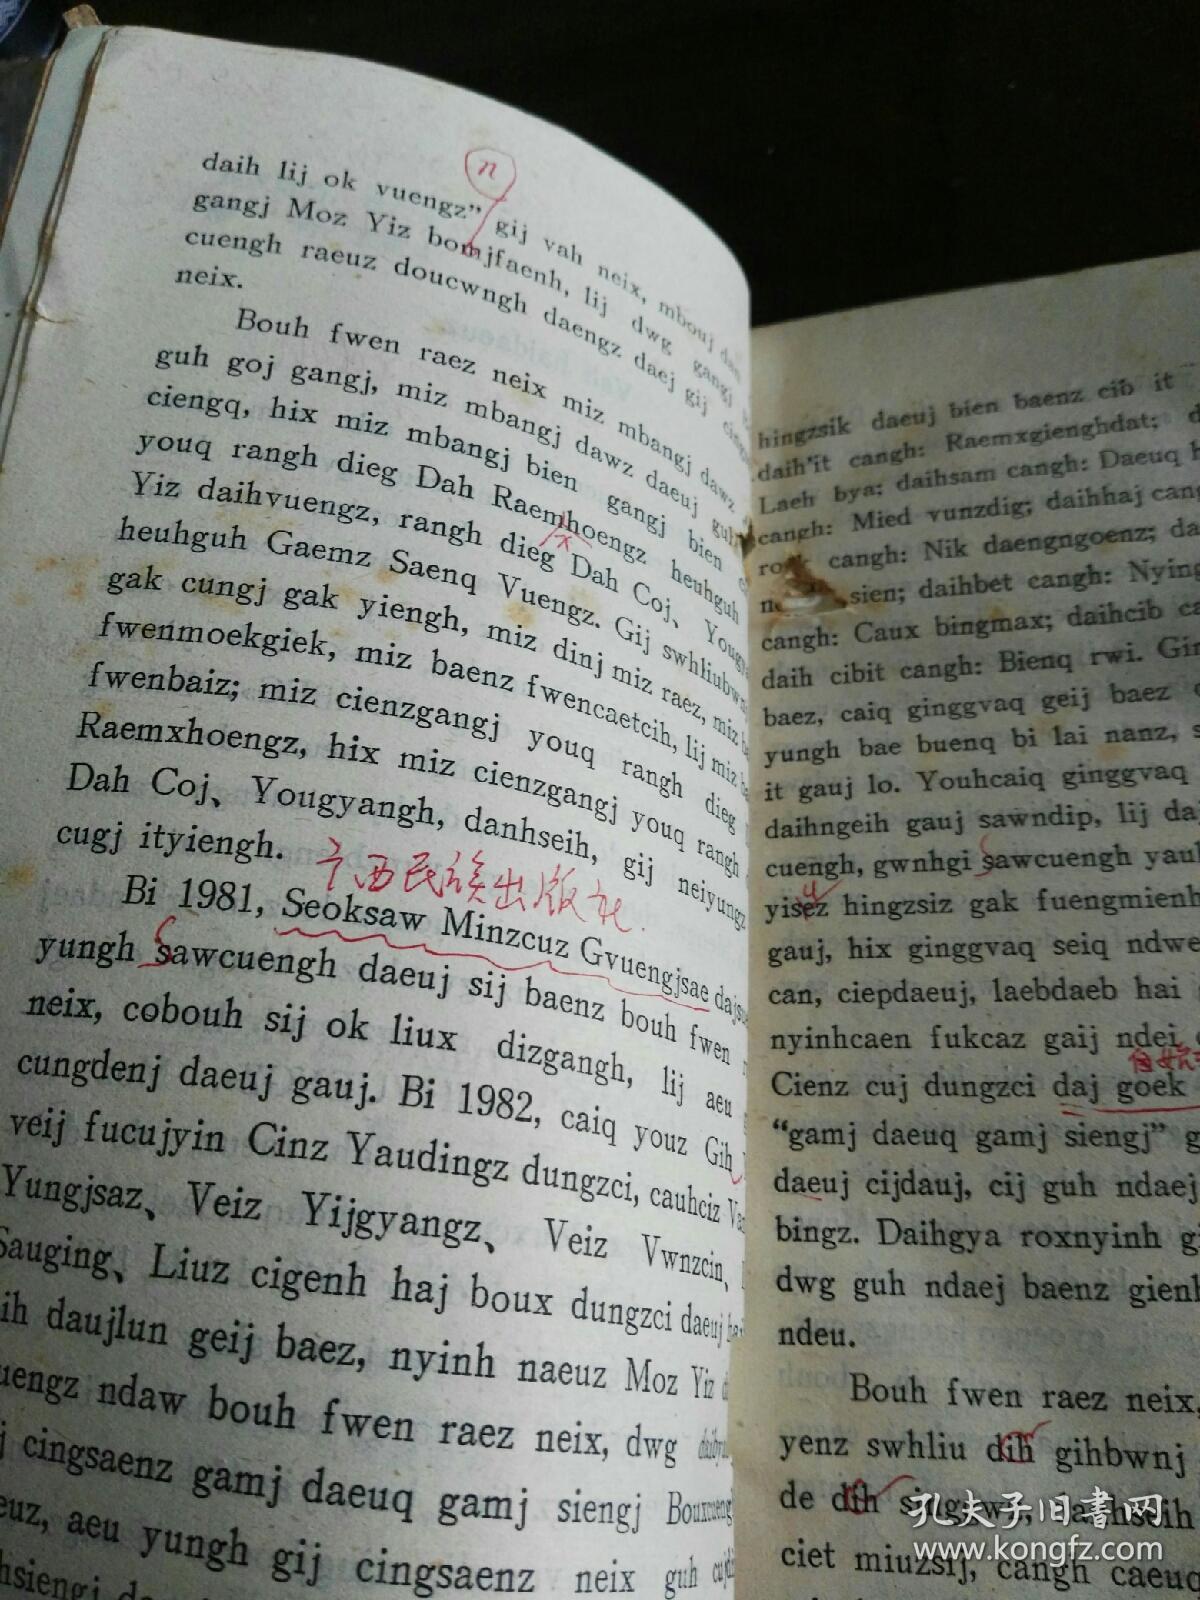 n
daih lij ok vuengz” gij vah neix, mbouj
gangj Moz Yiz bomjfaenh, lij dwg gangj
cuengh raeuz doucwngh daengz daej gij
neix.
Bouh fwen raez neix miz mbangj dawz
guh goj gangj, miz mbangj dawz daeuj guh
ciengq, hix miz mbangj bien gangj bien
youq rangh dieg Dah Raemhoengz heuhguh
x
Yiz daihvuengz, rangh dieg Dah Coj、
heuhguh Gaemz Saenq Vuengz. Gij
gak cungj gak yiengh, miz dinj miz raez, miz
fwenmoekgiek, miz baenz fwencaetcih, lij miz
fwenbaiz; miz cienzgangj youq rangh dieg
Raemxhoengz, hix miz cienzgangj youq rangh
Dah Coj、Yougyangh, danhseih, gij neiyungz
cugj ityiengh.
广西民族出版社.
Bi 1981, Seoksaw Minzcuz Gvuengjsae
yungh sawcuengh daeuj sij baenz bouh fwen
neix, cobouh sij ok liux dizgangh, lij aeu
cungdenj daeuj gauj. Bi 1982, caiq youz Gih
veij fucujyin Cinz Yaudingz dungzci, cauhciz
Yungjsaz、Veiz Yijgyangz、Veiz Vwnzcin、
Sauging、Liuz cigenh haj boux dungzci daeuj
daujlun geij baez, nyinh naeuz Moz Yiz
ndaw bouh fwen raez neix, dwg
cingsaenz gamj daeuq gamj siengj
aeu yungh gij cingsaenz neix guh
hingzsik daeuj bien baenz cib it
daih'it cangh: Raemxgienghdat;
Laeh bya; daihsam cangh: Daeuq
cangh: Mied vunzdig; daihhaj
cangh: Nik daengngoenz;
sien; daihbet cangh:
cangh: Caux bingmax; daihcib
daih cibit cangh: Bienq rwi.
baez, caiq ginggvaq geij baez
yungh bae buenq bi lai nanz,
it gauj lo. Youhcaiq ginggvaq
daihngeih gauj sawndip, lij
cuengh, gwnhgi sawcuengh
yisez hingzsiz gak fuengmienh
gauj, hix ginggvaq seiq
can, ciepdaeuj, laebdaeb hai
nyinhcaen fukcaz gaij ndei
Cienz cuj dungzci daj goek
“gamj daeuq gamj siengj”
daeuj cijdauj, cij guh ndaej
bingz. Daihgya roxnyinh
dwg guh ndaej baenz
ndeu.
Bouh fwen raez neix,
yenz swhliu dih gihbwnj
de dih
ciet miuzsij, cangh
孔夫子旧書网
www.kongfz.com